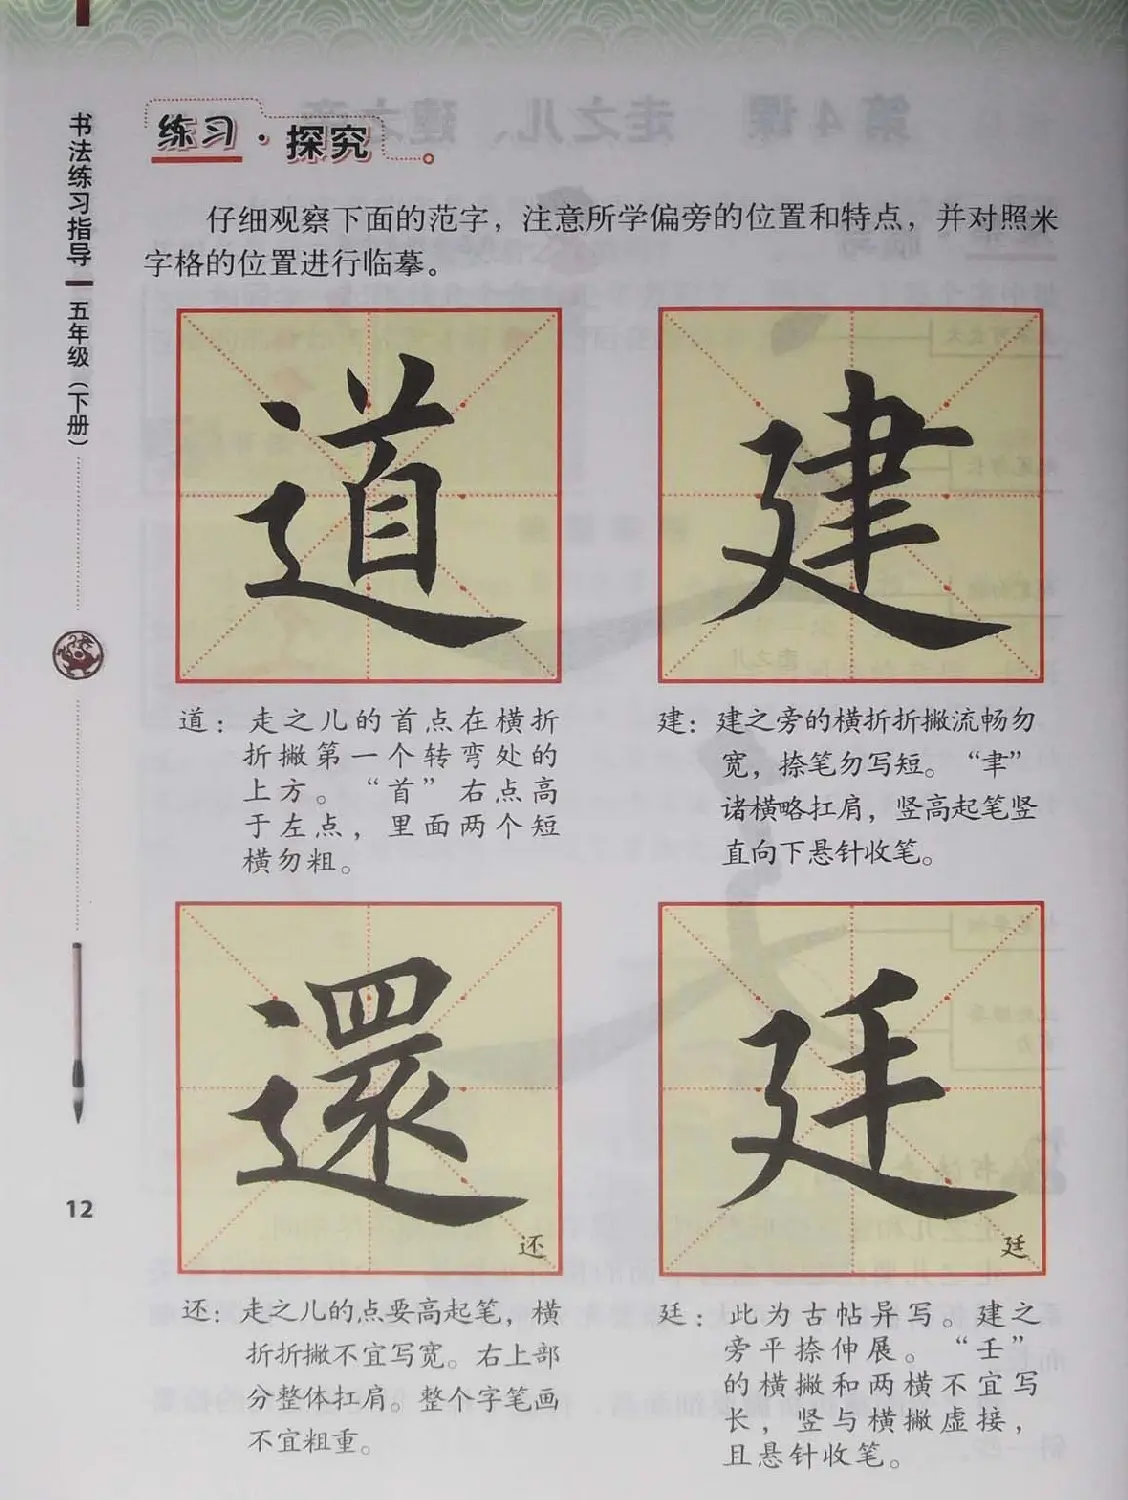 书法练习指导
五年级（下册）
12
练习·探究
仔细观察下面的范字，注意所学偏旁的位置和特点，并对照米
字格的位置进行临摹。
道
建
道：走之儿的首点在横折
折撇第一个转弯处的
上方。“首”右点高
于左点，里面两个短
横勿粗。
建：建之旁的横折折撇流畅勿
宽，捺笔勿写短。“聿”
诸横略扛肩，竖高起笔竖
直向下悬针收笔。
還
还
廷
廷
还：走之儿的点要高起笔，横
折折撇不宜写宽。右上部
分整体扛肩。整个字笔画
不宜粗重。
廷：此为古帖异写。建之
旁平捺伸展。“壬”
的横撇和两横不宜写
长，竖与横撇虚接，
且悬针收笔。